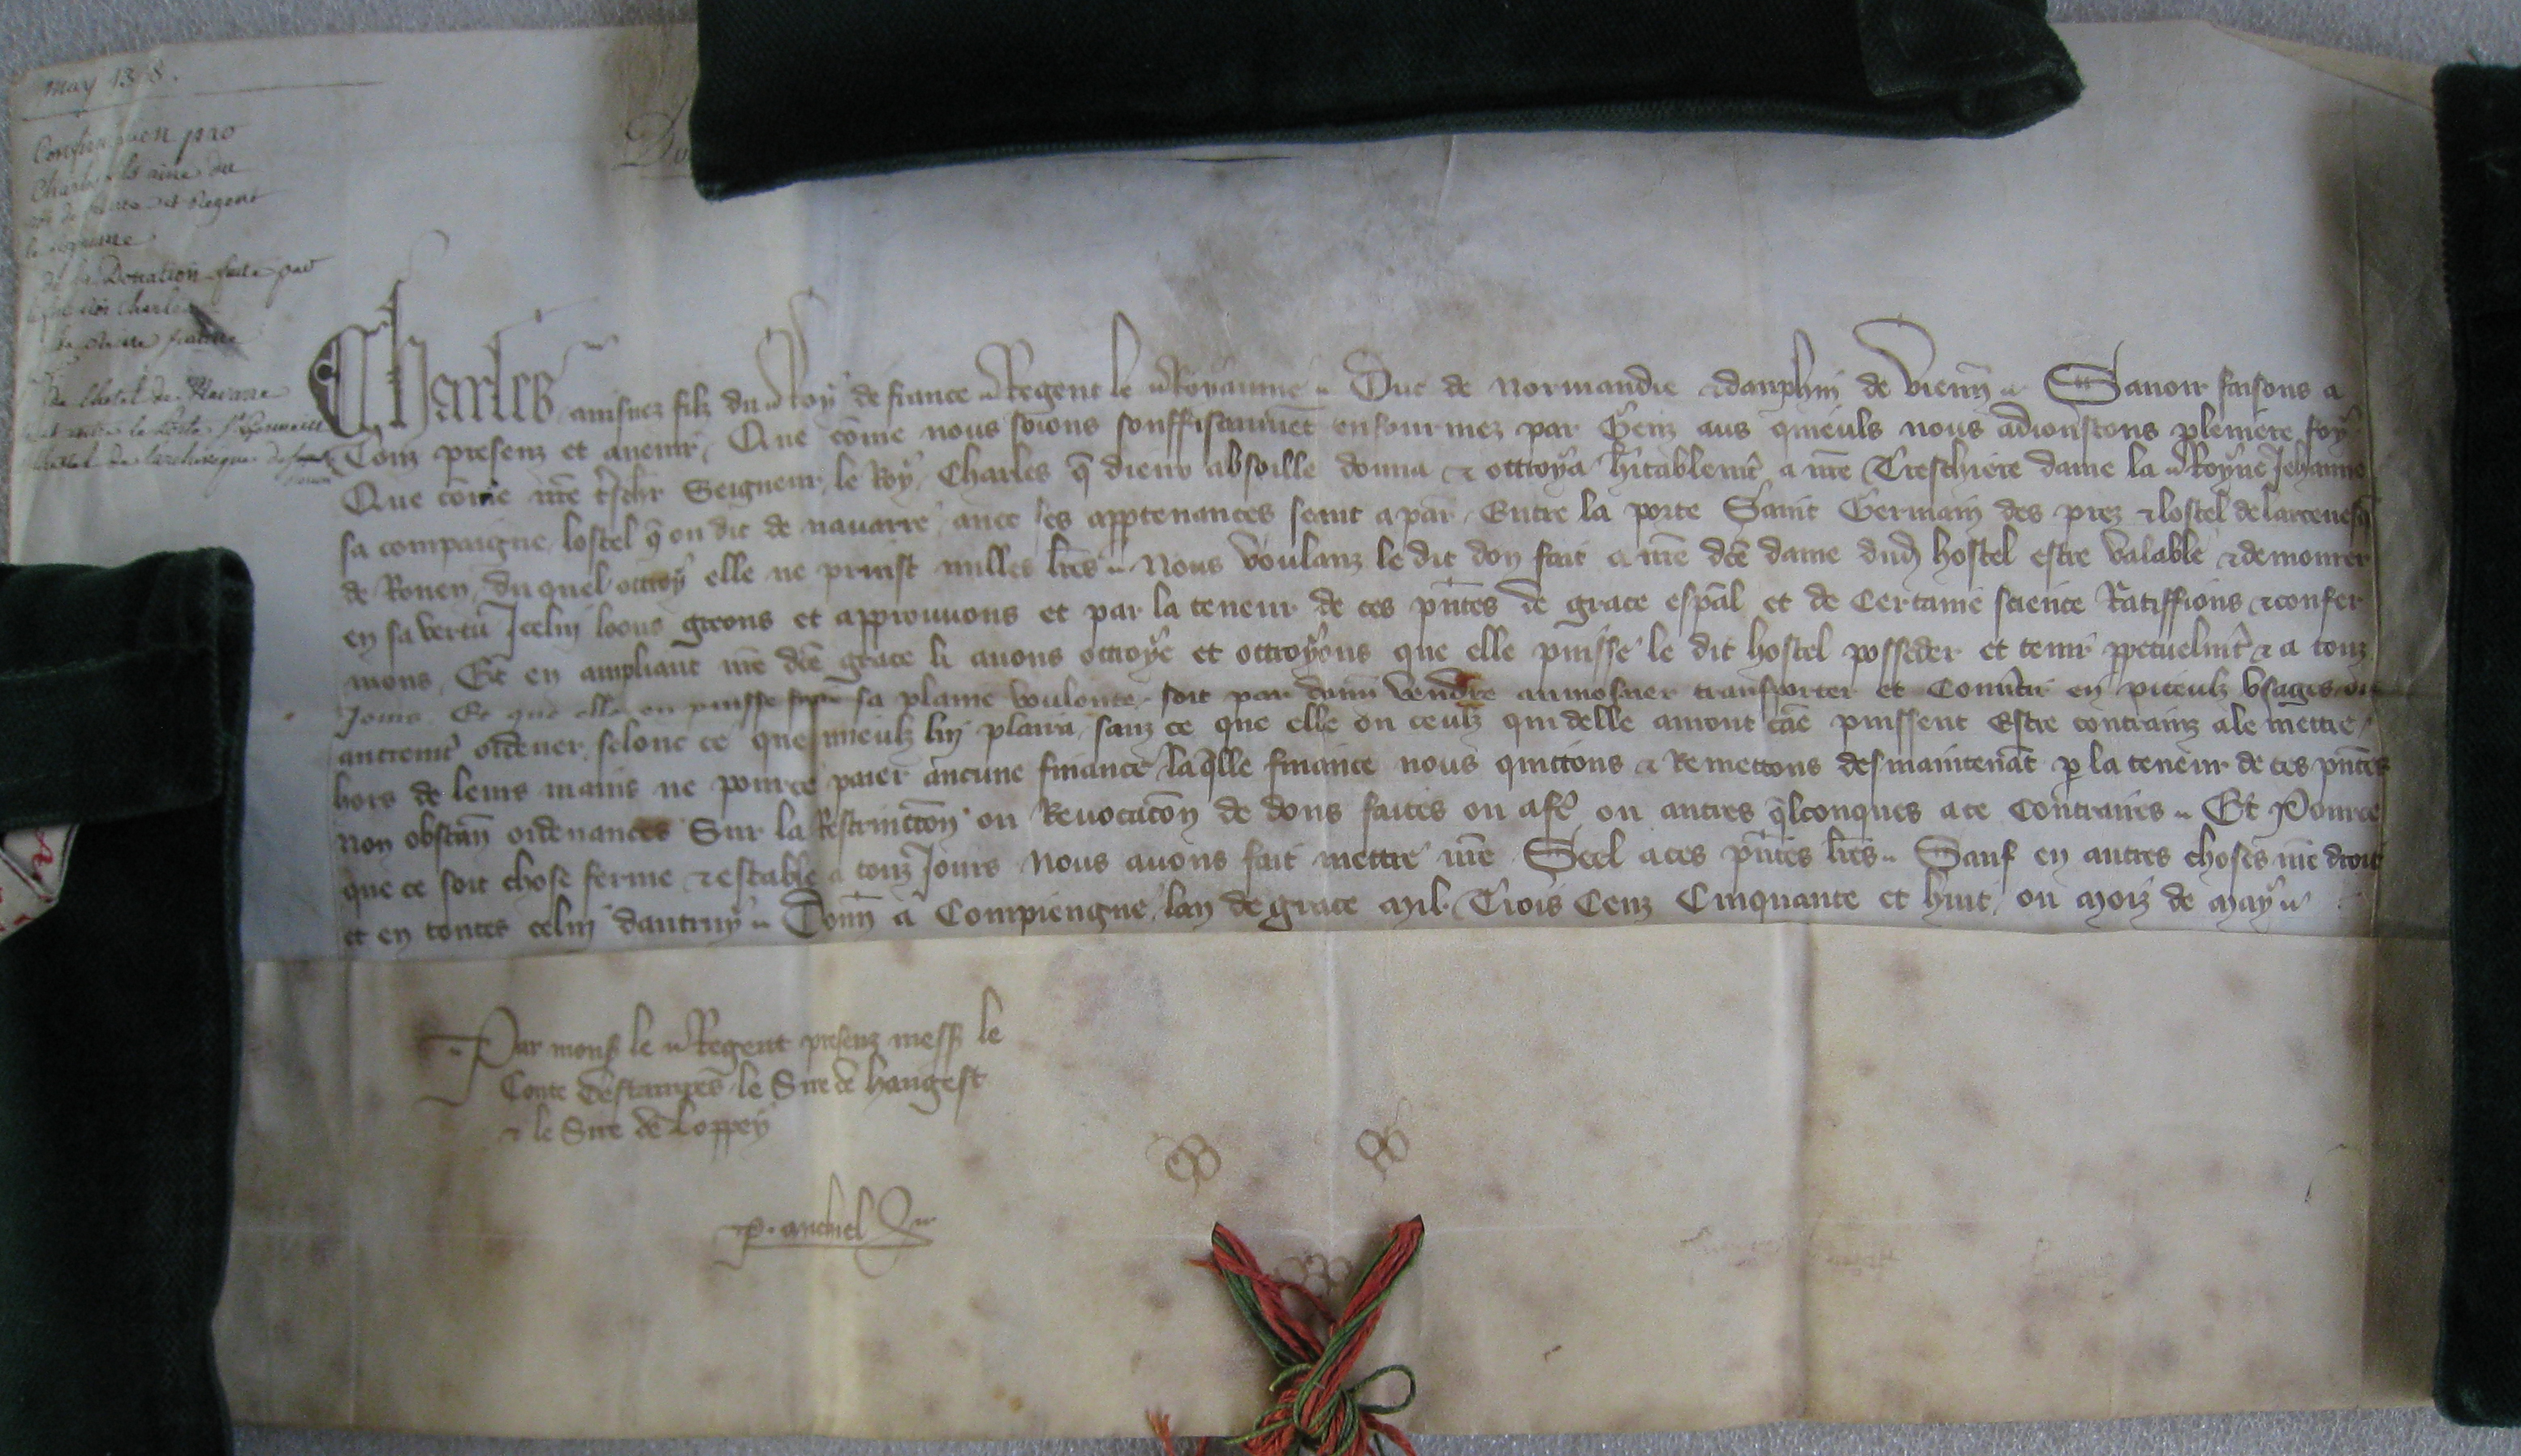 May 1358.
Confirmation pro
Charles fils aine du
roi de france et Regent
le royaume
de la Donation faite par
le feu roi Charles
a la Reine jeanne
de lhotel de Navarre
la porte St Germain
lhotel de larcheveque de
rouen
Charles ainsnez filz du Roy de france Regent le Royaume Duc de Normandie & dauphin de Vienn Savoir faisons a
Touz presenz et avenir, Que come nous soions souffisamment enfourmez par Genz aus quieuls nous adioustons pleniere foy
Que come nre treschr Seigneur le Roy Charles q dieux absoille donna & ottroya hitablemt a nre Treschiere dame la Royne Jehanne
sa compaigne lostel q on dit de navarre avec ses apptenances seant a par Entre la porte Saint Germain des prez & lostel de larcevesq
de Rouen du quel ottroy elle ne prinst nulles lres Nous voulanz le dit don fait a nre dce dame dud hostel estre valable & demourer
en sa vertu Icelui loons greons et approuvons et par la teneur de ces pntes de grace espal et de Certaine science Ratiffions & confer
mons, Et en ampliant nre dce grace li avons ottroye et ottroyons que elle puisse le dit hostel posseder et tenir ppetuelmt & a touz
Jours Et que elle en puisse faire sa plaine voulente soit par donn vendre aumosner transporter et Convtir en piteulz usages ou
autremt ordener selonc ce que mieulz luy plaira sanz ce que elle ou ceulz qui delle auront cae puissent Estre contrainz a le mettre
hors de leurs mains ne pource paier aucune finance laqlle finance nous quittons & Remettons des maintenat p la teneur de ces pntes
Non obstan ordenances Sur la Restrinction ou Revocacon de dons faites ou a fe ou autres qlconques a ce Contraires Et Pource
que ce soit chose ferme & estable a touz Jours Nous avons fait mettre nre Seel a ces pntes lres Sauf en autres choses nre droit
et en toutes celui dautruy Donn a Compiengne lan de grace Mil Trois Cenz Cinquante et huit ou Moiz de May
Par mons le Regent presenz mess le
Conte destampes le Sire de hangest
& le Sire de Loppey